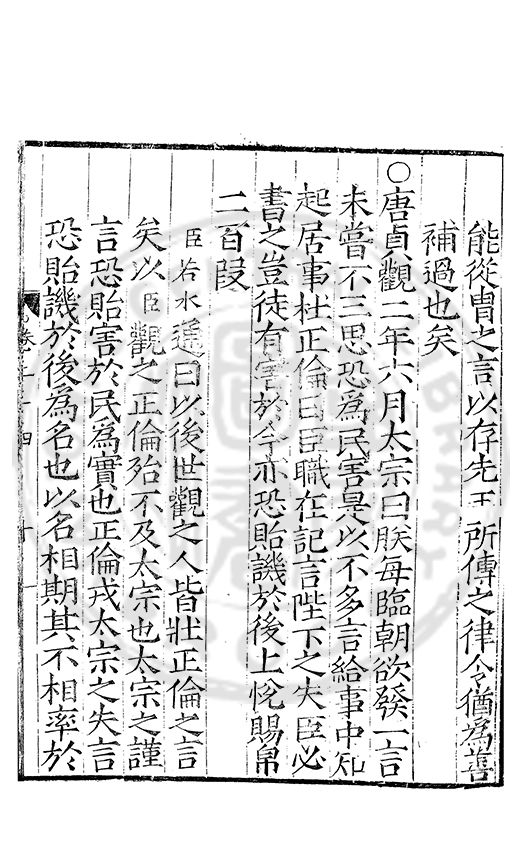 能從胄之言以存先王所傳之律令猶為善
補過也矣
○唐貞觀二年六月太宗曰朕每臨朝欲發一言
未嘗不三思恐為民害是以不多言給事中知
起居事杜正倫曰臣職在記言陛下之失臣必
書之豈徒有害於今亦恐貽譏於後上悅賜帛
二百段
臣若水通曰以後世觀之人皆壯正倫之言
矣以臣觀之正倫殆不及太宗也太宗之謹
言恐貽害於民為實也正倫戒太宗之失言
恐貽譏於後為名也以名相期其不相率於